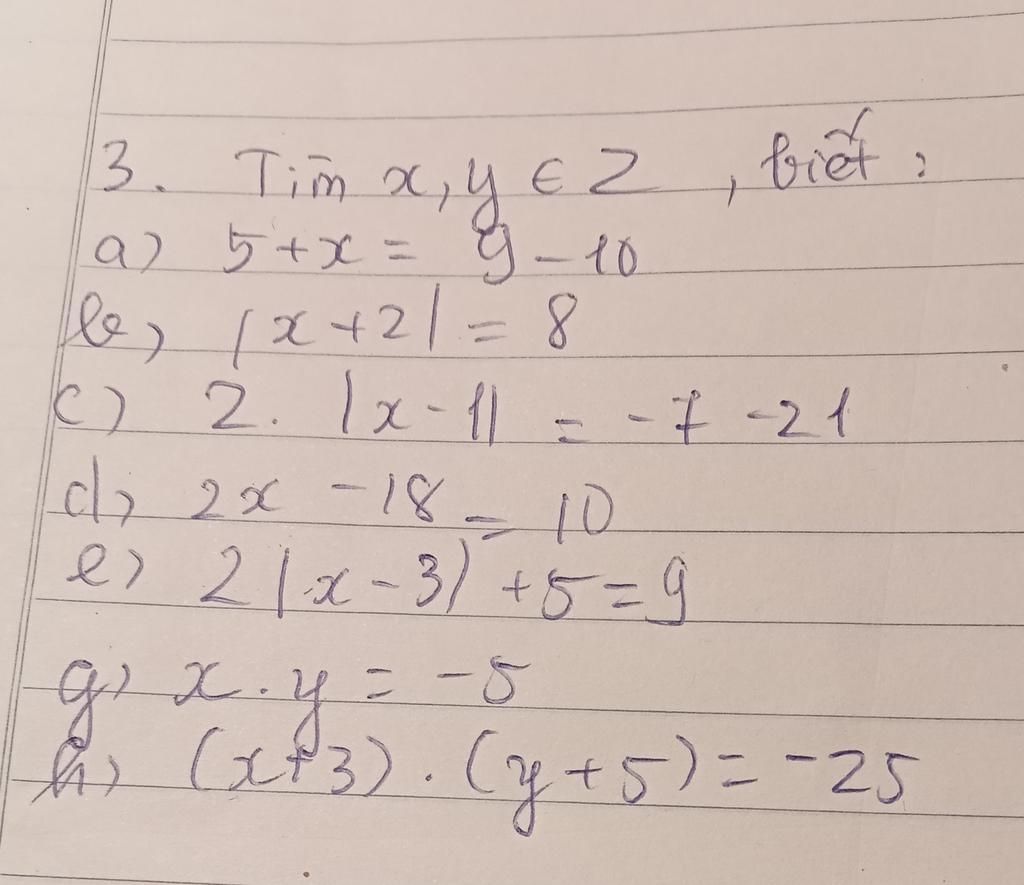 3. Tìm x, y ∈ Z, biết:
a) 5 + x = 9 - 10
b) |x + 2| = 8
c) 2. |x - 1| = -7 - 21
d) 2x - 18 = 10
e) 2|x - 3| + 5 = 9
g) x . y = -5
h) (x + 3) . (y + 5) = -25